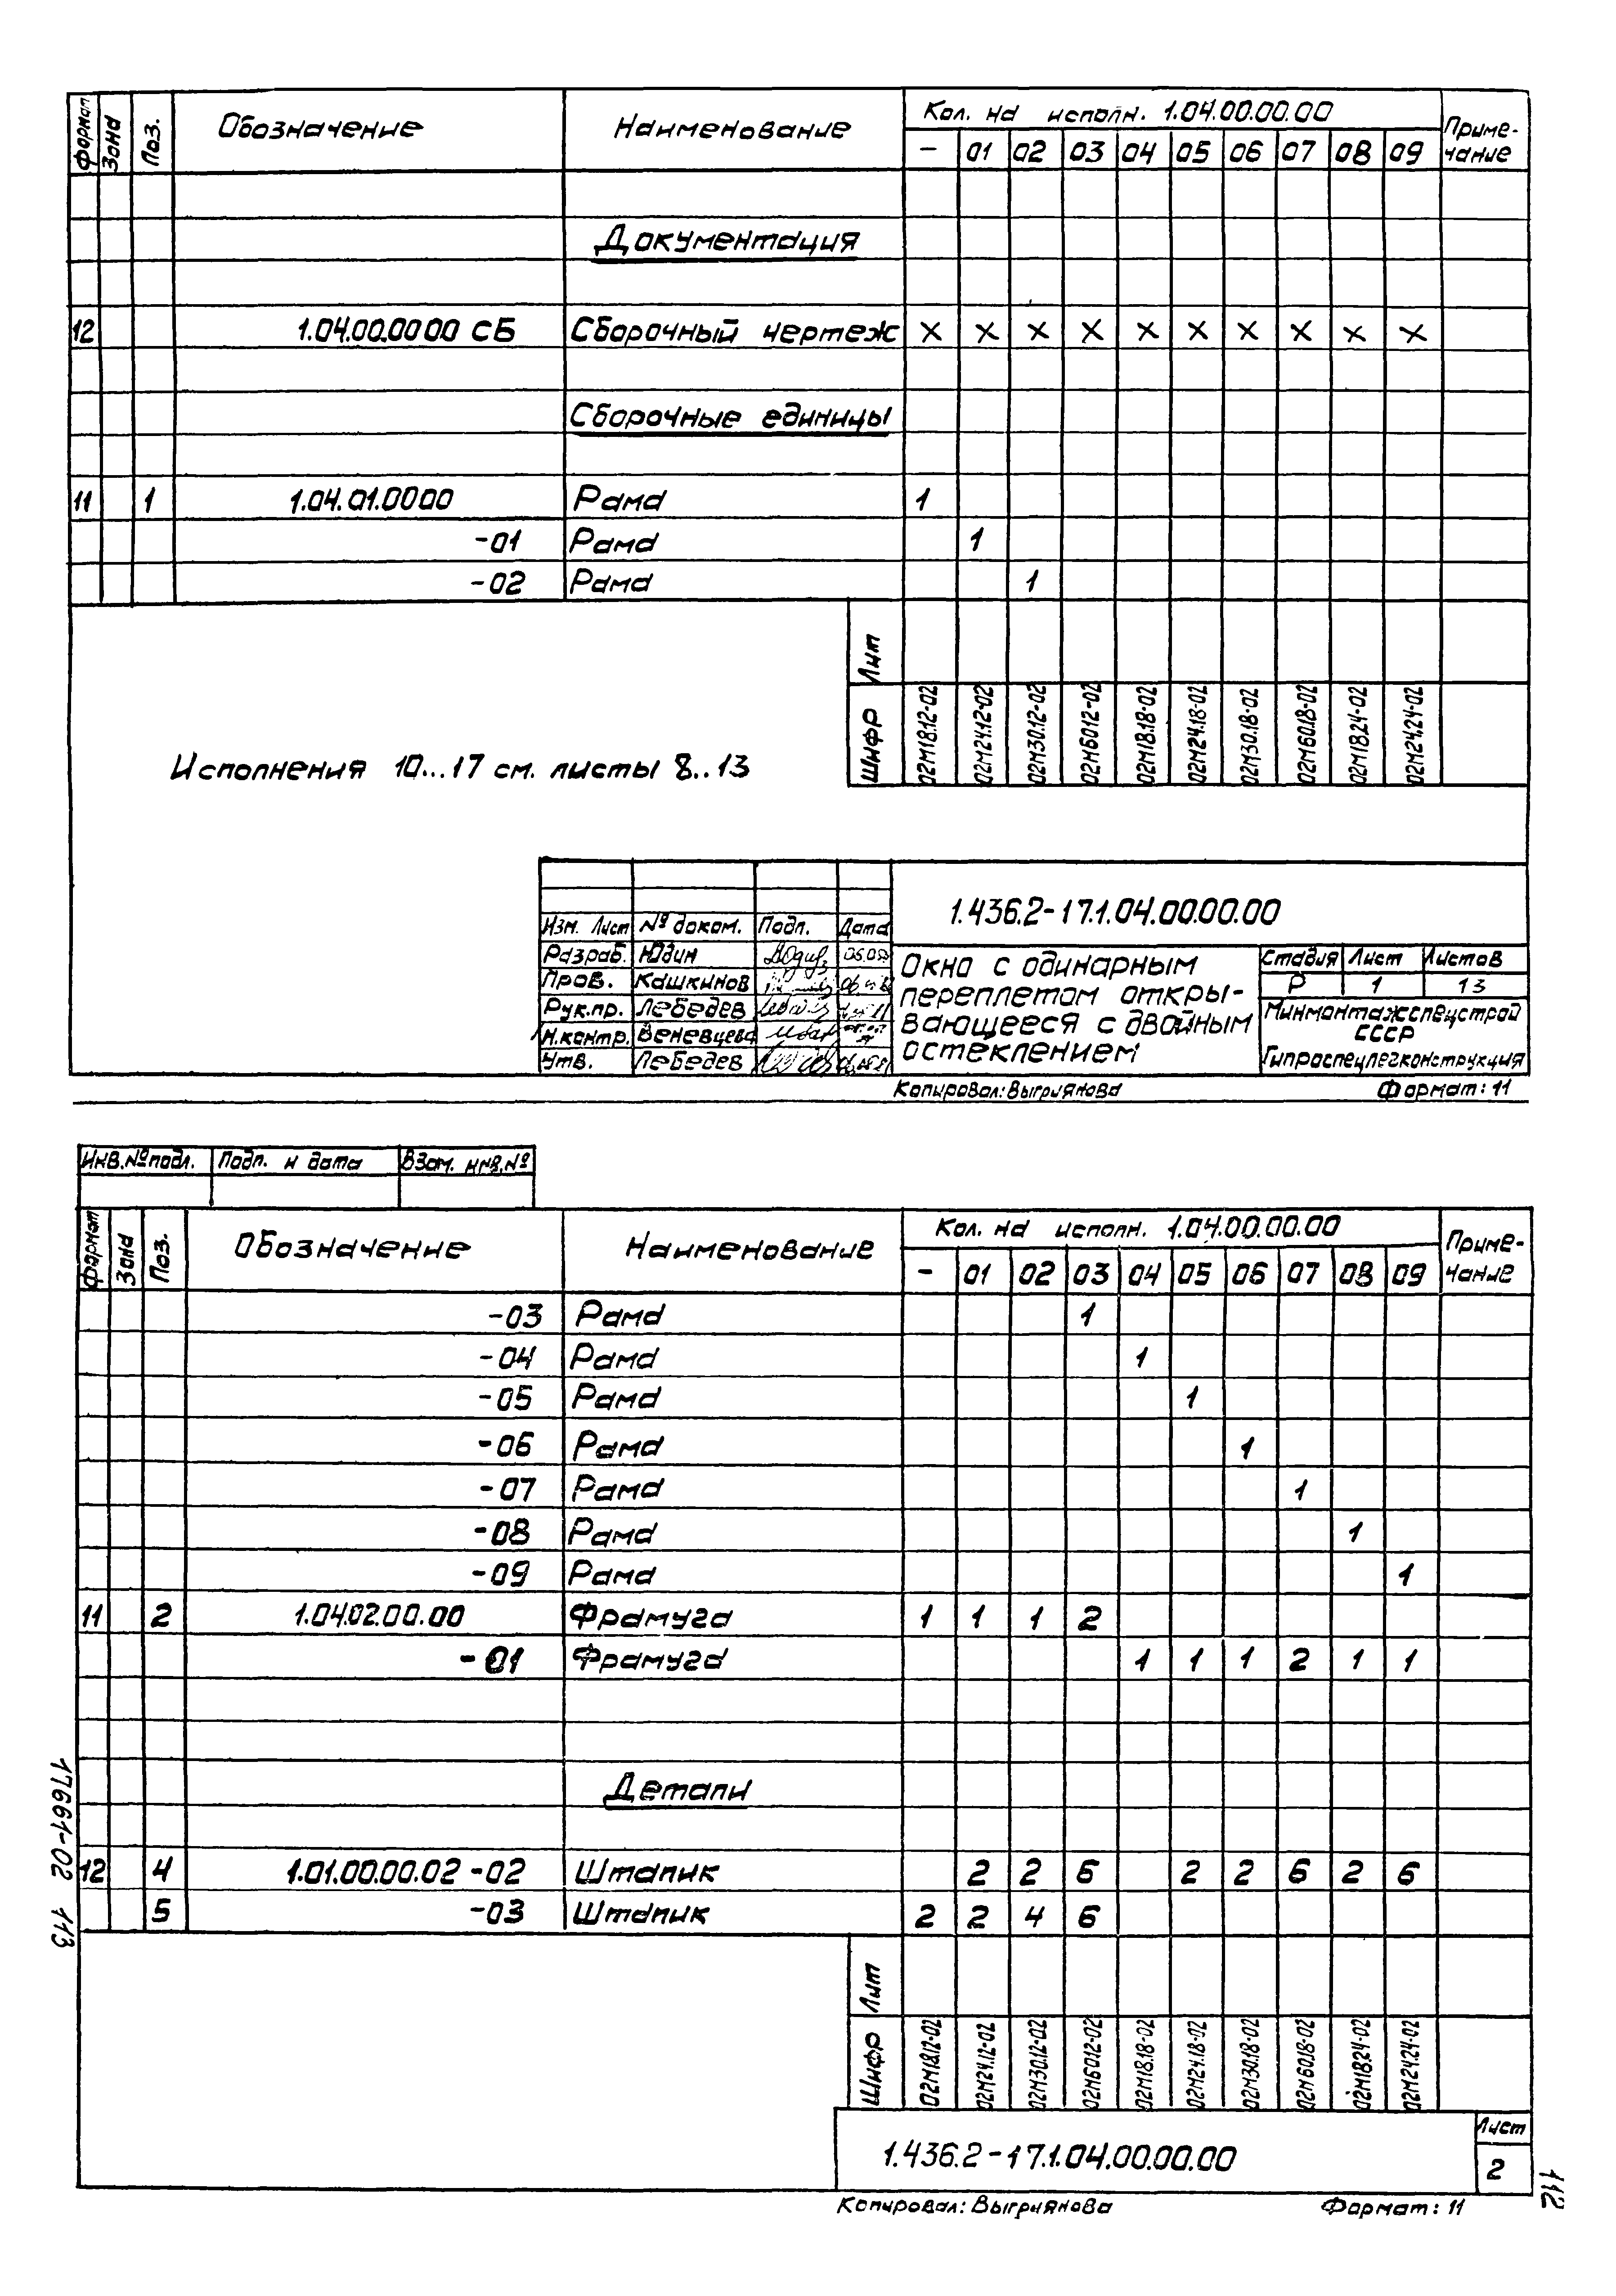 Формат Зона Поз. Обозначение Наименование Кол. на исполн. 1.04.00.00.00 Приме-чание
- 01 02 03 04 05 06 07 08 09
Документация
12 1.04.00.0000 СБ Сборочный чертеж × × × × × × × × × ×
Сборочные единицы
11 1 1.04.01.0000 Рама 1
-01 Рама 1
-02 Рама 1
Лит
Шифр 02М18.12-02 02М24.12-02 02М30.12-02 02М6012-02 02М18.18-02 02М24.18-02 02М30.18-02 02М60.18-02 02М1824-02 02М24.24-02
Исполнения 10...17 см. листы 8..13
1.436.2-17.1.04.00.00.00
Изм. Лист № доком. Подп. Дата
Разраб. Юдин
Пров. Кашкинов
Рук.пр. Лебедев
Н.контр. Веневцева
Утв. Лебедев
Окно с одинарным
переплетом откры-
вающееся с двойным
остеклением
Стадия Лист Листов
Р 1 13
Минмонтажспецстрой
СССР
Гипроспецлегконструкция
Копировал: Выгриянова Формат: 11
Инв.№ подл. Подп. и дата Взам. инв.№
Формат Зона Поз. Обозначение Наименование Кол. на исполн. 1.04.00.00.00 Приме-чание
- 01 02 03 04 05 06 07 08 09
-03 Рама 1
-04 Рама 1
-05 Рама 1
-06 Рама 1
-07 Рама 1
-08 Рама 1
-09 Рама 1
11 2 1.04.02.00.00 Фрамуга 1 1 1 2
-01 Фрамуга 1 1 1 2 1 1
Детали
12 4 1.01.00.00.02-02 Штапик 2 2 6 2 2 6 2 6
5 -03 Штапик 2 2 4 6
Лит
Шифр 02М18.12-02 02М24.12-02 02М30.12-02 02М6012-02 02М18.18-02 02М24.18-02 02М30.18-02 02М6018-02 02М1824-02 02М24.24-02
1.436.2-17.1.04.00.00.00
Лист
2
Копировал: Выгриянова Формат: 11
17661-02 113
112